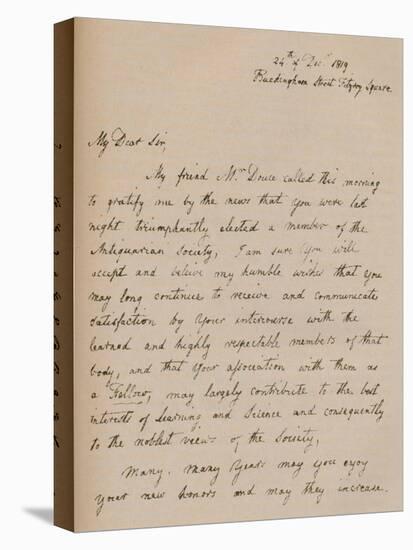 24th of Dec. 1819
Buckingham Street Fitzroy Square
My Dear Sir,
My friend Mr. Douce called this morning
to gratify me by the news that you were last
night triumphantly elected a member of the
Antiquarian Society, I am sure you will
accept and believe my humble wishes that you
may long continue to receive and communicate
satisfaction by your intercourse with the
learned and highly respectable members of that
body, and that your association with them as
a Fellow, may largely contribute to the best
interests of Learning and Science and consequently
to the noblest views of the Society,
Many, many years may you enjoy
your new honors and may they increase.